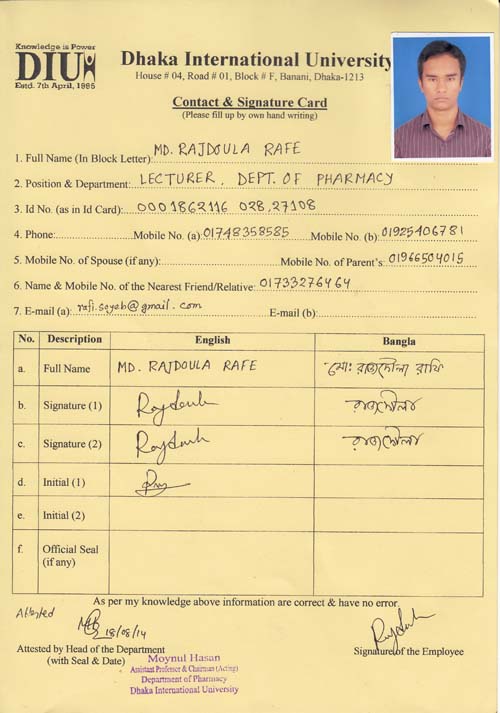 Knowledge is Power
DIU
Estd. 7th April, 1995
Dhaka International University
House # 04, Road # 01, Block # F, Banani, Dhaka-1213
Contact & Signature Card
(Please fill up by own hand writing)
1. Full Name (In Block Letter): MD. RAJDOULA RAFE
2. Position & Department: LECTURER, DEPT. OF PHARMACY
3. Id No. (as in Id Card): 0001862116 028,27108
4. Phone: Mobile No. (a): 01748358585 Mobile No. (b): 01925406781
5. Mobile No. of Spouse (if any): Mobile No. of Parent's: 01966504015
6. Name & Mobile No. of the Nearest Friend/Relative: 01733276464
7. E-mail (a): rafi.sayeb@gmail.com E-mail (b):
No. Description English Bangla
a. Full Name MD. RAJDOULA RAFE মোঃ রাজদৌলা রাফি
b. Signature (1) Rajdoula রাজদৌলা
c. Signature (2) Rajdoula রাজদৌলা
d. Initial (1)
e. Initial (2)
f. Official Seal
(if any)
As per my knowledge above information are correct & have no error.
Attested
18/08/14
Rajdoula
Attested by Head of the Department
(with Seal & Date)
Signature of the Employee
Moynul Hasan
Assistant Professor & Chairman (Acting)
Department of Pharmacy
Dhaka International University